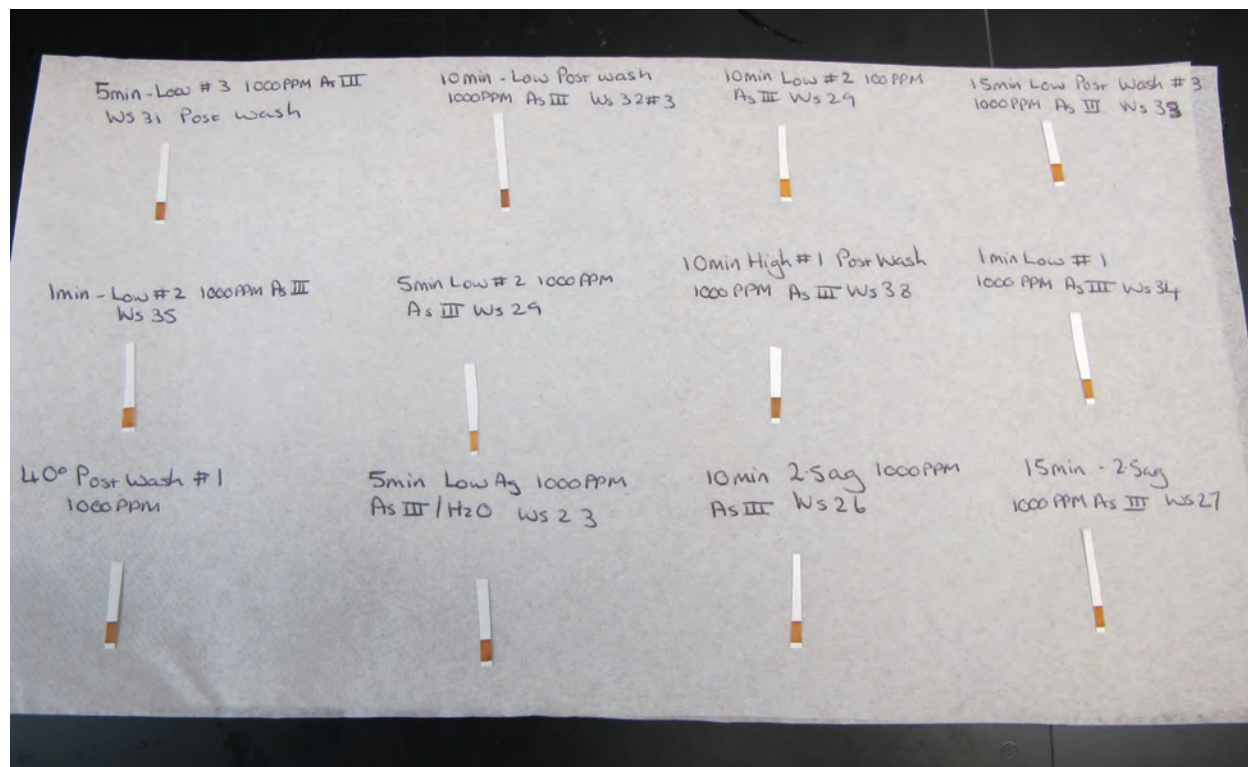 5min-Low #3 1000PPM As III
Ws 31 Post wash
10min-Low Post wash
1000PPM As III Ws 32#3
10min Low #2 100PPM
As III Ws 29
15min Low Post Wash #3
1000PPM As III Ws 33
1min-Low #2 1000PPM As III
Ws 35
5min Low #2 1000PPM
As III Ws 29
10min High #1 Post Wash
1000PPM As III Ws 38
1min Low #1
1000PPM As III Ws 34
40° Post Wash #1
1000PPM
5min Low Ag 1000PPM
As III/H2O Ws 23
10min 2.5ag 1000PPM
As III Ws 26
15min - 2.5ag
1000PPM As III Ws 27